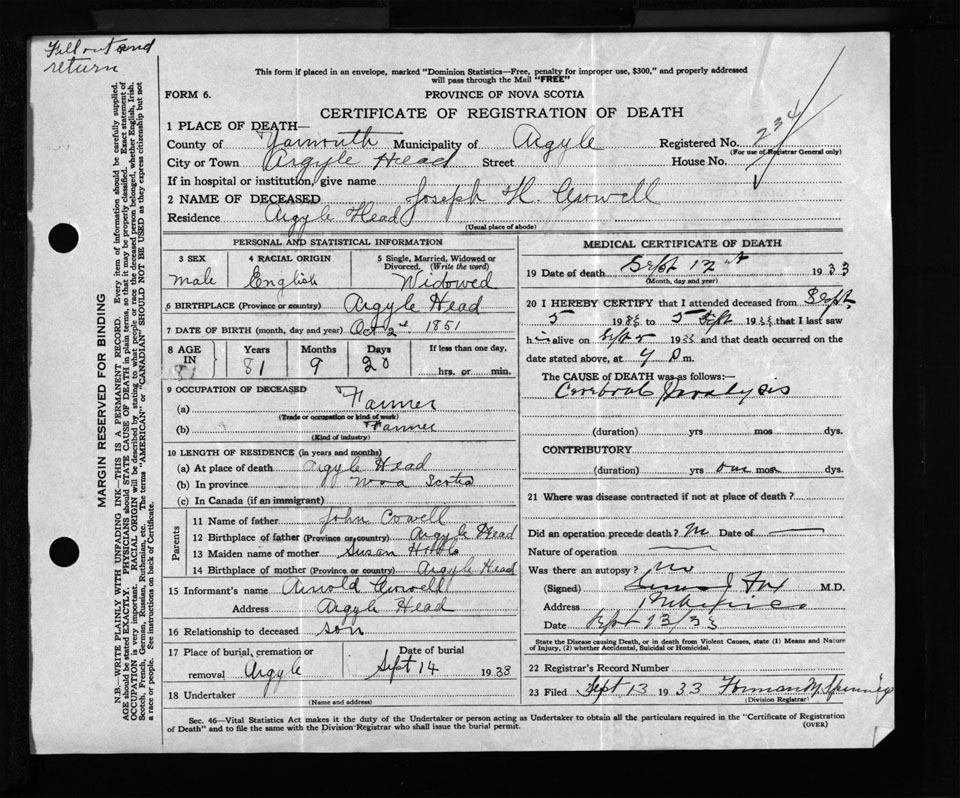 Fill out and
return
This form if placed in an envelope, marked "Dominion Statistics—Free, penalty for improper use, $300," and properly addressed
will pass through the Mail "FREE"
FORM 6.
PROVINCE OF NOVA SCOTIA
CERTIFICATE OF REGISTRATION OF DEATH
1 PLACE OF DEATH—
County of Yarmouth Municipality of Argyle Registered No. 234
(For use of Registrar General only)
City or Town Argyle Head Street House No.
If in hospital or institution, give name
2 NAME OF DECEASED Joseph H.
Residence Argyle Head
(Usual place of abode)
PERSONAL AND STATISTICAL INFORMATION
3 SEX 4 RACIAL ORIGIN 5 Single, Married, Widowed or
Divorced. (Write the word)
male English Widowed
6 BIRTHPLACE (Province or country) Argyle Head
7 DATE OF BIRTH (month, day and year) Oct 2nd 1851
8 AGE IN Years Months Days If less than one day,
81 81 9 20 hrs. or min.
9 OCCUPATION OF DECEASED
(a) Farmer
(Trade or occupation or kind of work)
(b) Farmer
(Kind of industry)
10 LENGTH OF RESIDENCE (in years and months)
(a) At place of death Argyle Head
(b) In province Nova Scotia
(c) In Canada (if an immigrant)
Parents
11 Name of father John
12 Birthplace of father (Province or country) Argyle Head
13 Maiden name of mother Susan
14 Birthplace of mother (Province or country) Argyle Head
15 Informant's name Arnold
Address Argyle Head
16 Relationship to deceased son
17 Place of burial, cremation or Date of burial
removal Argyle Sept 14 1933
18 Undertaker
(Name and address)
MEDICAL CERTIFICATE OF DEATH
19 Date of death Sept 12 1933
(Month, day and year)
20 I HEREBY CERTIFY that I attended deceased from Sept.
5 1933 to 5 Sept 1933 that I last saw
h alive on Sept 1933 and that death occurred on the
date stated above, at m.
The CAUSE OF DEATH was as follows:—
Cerebral Paralysis
(duration) yrs mos dys.
CONTRIBUTORY
(duration) yrs one mos dys.
21 Where was disease contracted if not at place of death?
Did an operation precede death? No Date of
Nature of operation
Was there an autopsy? No
(Signed) Fox M.D.
Address
Date Sept 13/33
State the Disease causing Death, or in death from Violent Causes, state (1) Means and Nature
of Injury, (2) whether Accidental, Suicidal or Homicidal.
22 Registrar's Record Number
23 Filed Sept 13 1933
(Division Registrar)
Sec. 46—Vital Statistics Act makes it the duty of the Undertaker or person acting as Undertaker to obtain all the particulars required in the "Certificate of Registration
of Death" and to file the same with the Division Registrar who shall issue the burial permit.
(OVER)
MARGIN RESERVED FOR BINDING
N.B.—WRITE PLAINLY WITH UNFADING INK—THIS IS A PERMANENT RECORD. Every item of information should be carefully supplied.
AGE should be stated EXACTLY. PHYSICIANS should STATE CAUSE OF DEATH in plain terms, so that it may be properly classified. Exact statement of
OCCUPATION is very important. RACIAL ORIGIN will be described by stating to what people or race the deceased person belonged, whether English, Irish,
Scotch, French, German, Russian, Ruthenian, etc. The terms "AMERICAN" or "CANADIAN" SHOULD NOT BE USED as they express citizenship but not
a race or people. See instructions on back of Certificate.